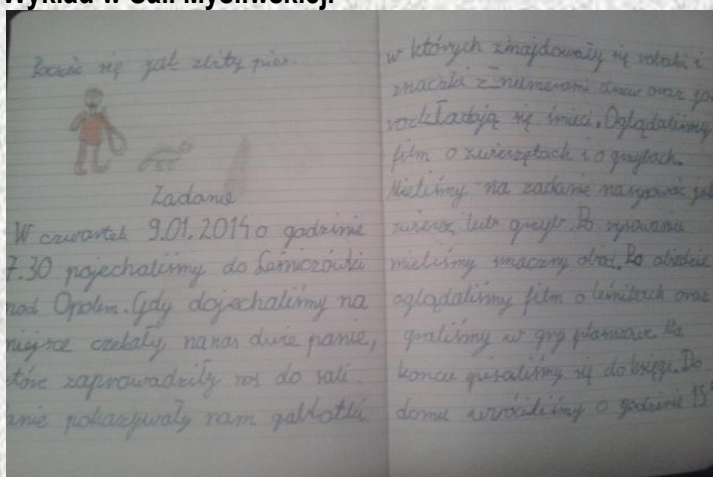 Wykład w Sali Myśliwskiej.
się jak zbity pies.
Zadanie
W czwartek 9.01.2014 o godzinie
7.30 pojechaliśmy do Leśniczówki
pod Opolem. Gdy dojechaliśmy na
miejsce czekały na nas dwie panie,
które zaprowadziły nas do sali.
Panie pokazywały nam gablotki
w których znajdowały się robaki i
znaczki z numerami drzew oraz ja
rozkładają się śmieci. Oglądaliśmy
film o zwierzętach i o grzybach.
Mieliśmy na zadanie narysować jak
zwierzę lub grzyb. Po rysowaniu
mieliśmy smaczny obiad. Po obiedzie
oglądaliśmy film o leśnikach oraz
graliśmy w gry planszowe. Na
koncu pisaliśmy się do księgi. Do
domu wróciliśmy o godzinie 15